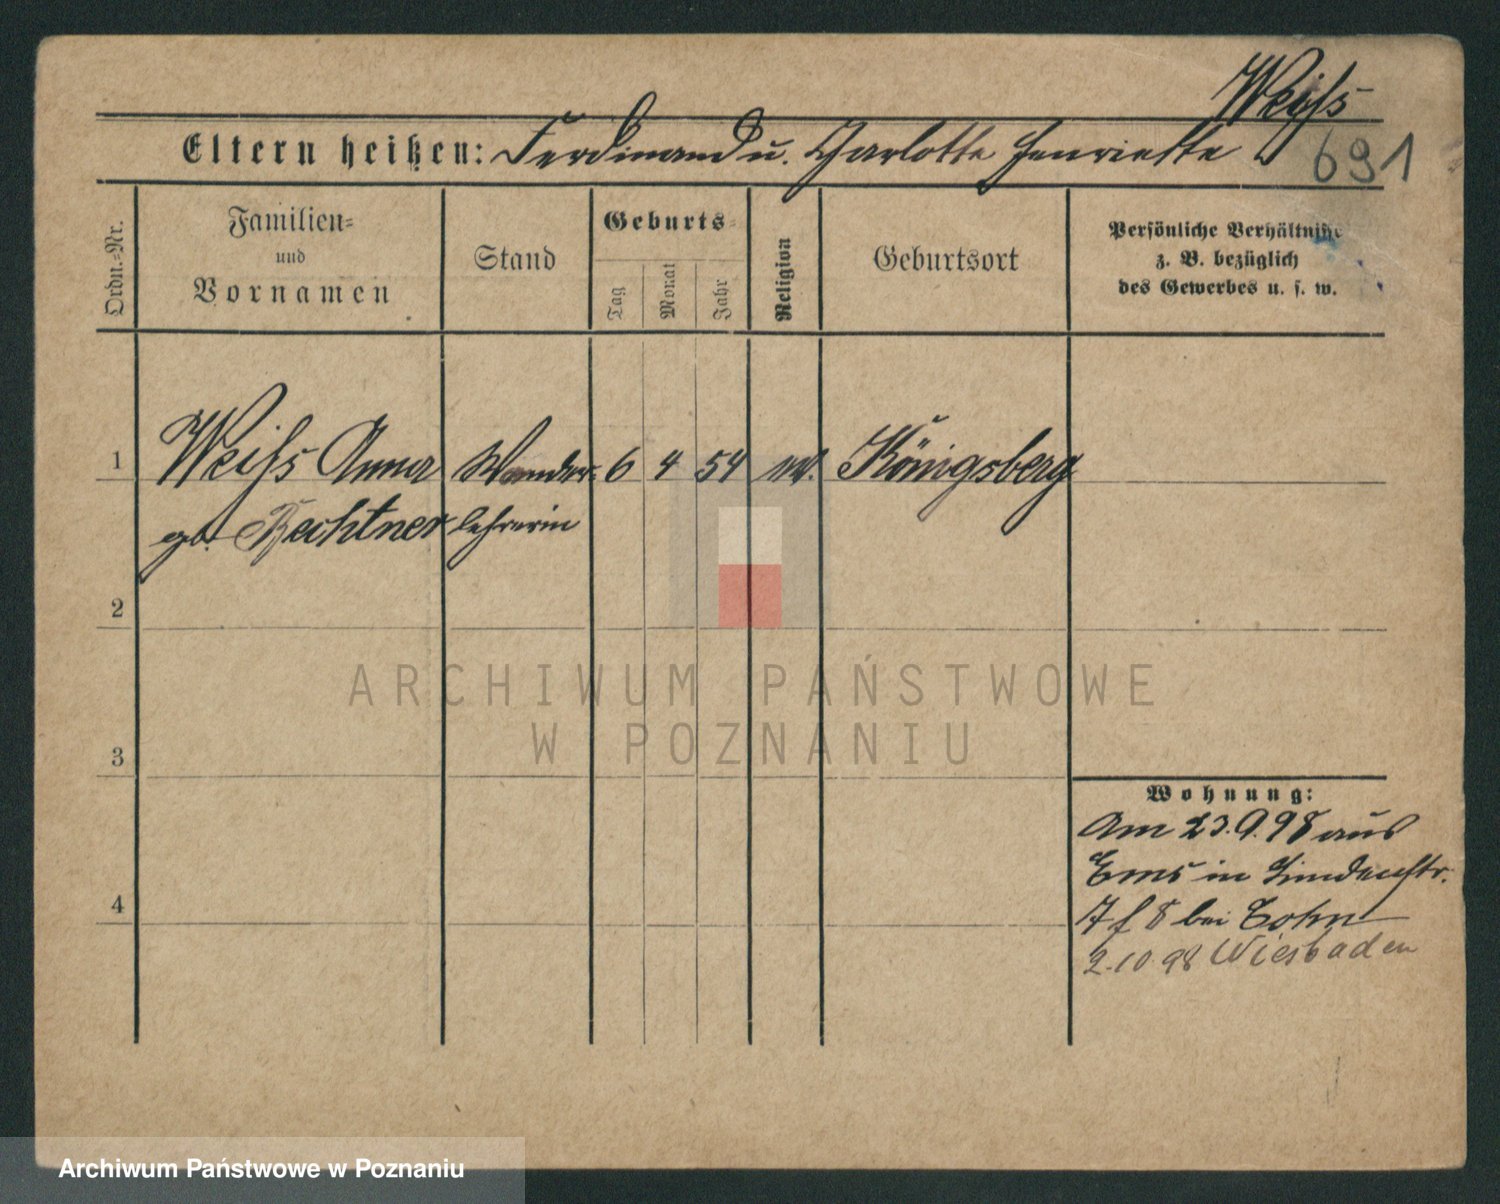 Weiſs
Eltern heißen: Ferdinand u. Charlotte Henriette
691
Ordn.-Nr.
Familien-
und
Vornamen
Stand
Geburts-
Tag
Monat
Jahr
Religion
Geburtsort
Persönliche Verhältnisse
z. B. bezüglich
des Gewerbes u. s. w.
1 Weiſs Anna Wander- 6 4 54 ev. Königsberg
gb. Rechtner lehrerin
2
3
4
Wohnung:
Am 23.9.98 aus
Ems in Lindenstr.
7 f 8 bei Cohn
2.10 98 Wiesbaden
ARCHIWUM PAŃSTWOWE
W POZNANIU
Archiwum Państwowe w Poznaniu